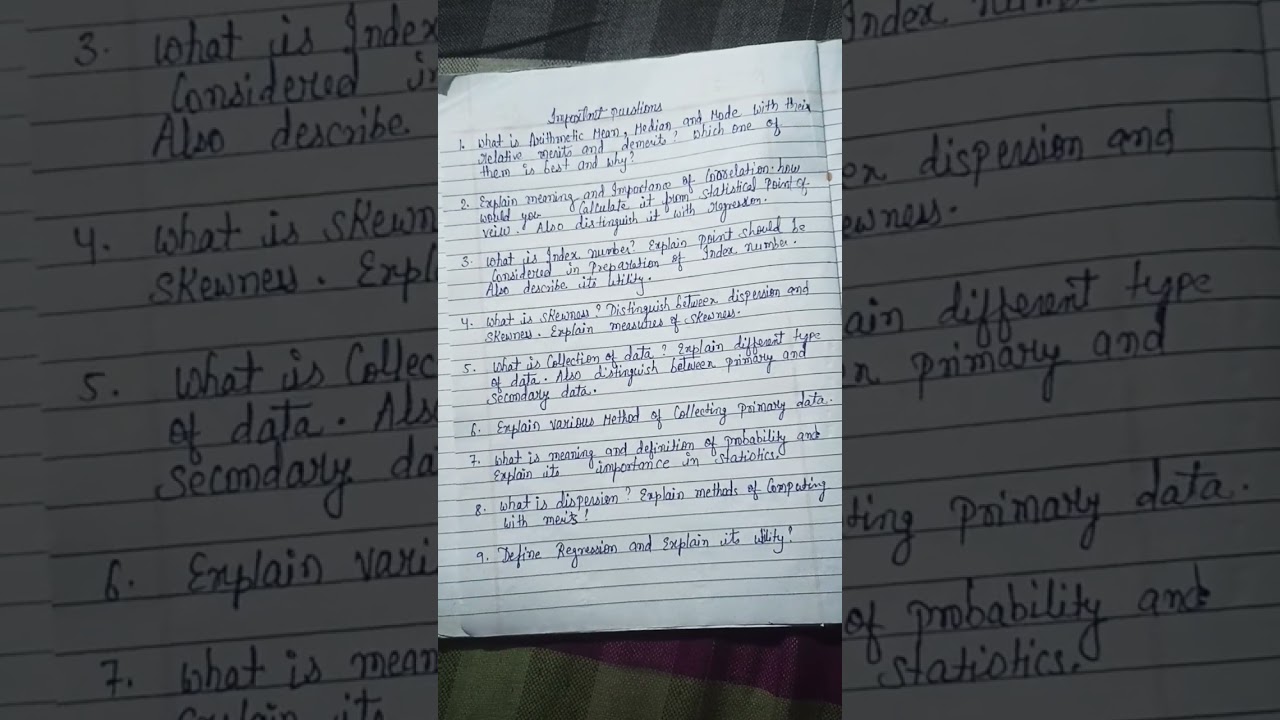 Important questions
1. What is Arithmetic Mean, Median and Mode with their
relative merits and demerits? Which one of
them is best and why?
2. Explain meaning and Importance of Correlation. how
would you calculate it from statistical point of
veiw. Also distinguish it with regression.
3. What is Index number? Explain point should be
Considered in preparation of Index number.
Also describe its utility.
4. What is skewness? Distinguish between dispersion and
skewness. Explain measures of skewness.
5. What is Collection of data? Explain different type
of data. Also distinguish between primary and
secondary data.
6. Explain various Method of Collecting primary data.
7. What is meaning and definition of probability and
Explain its importance in statistics.
8. What is dispersion? Explain methods of Computing
with merits!
9. Define Regression and Explain its utility?